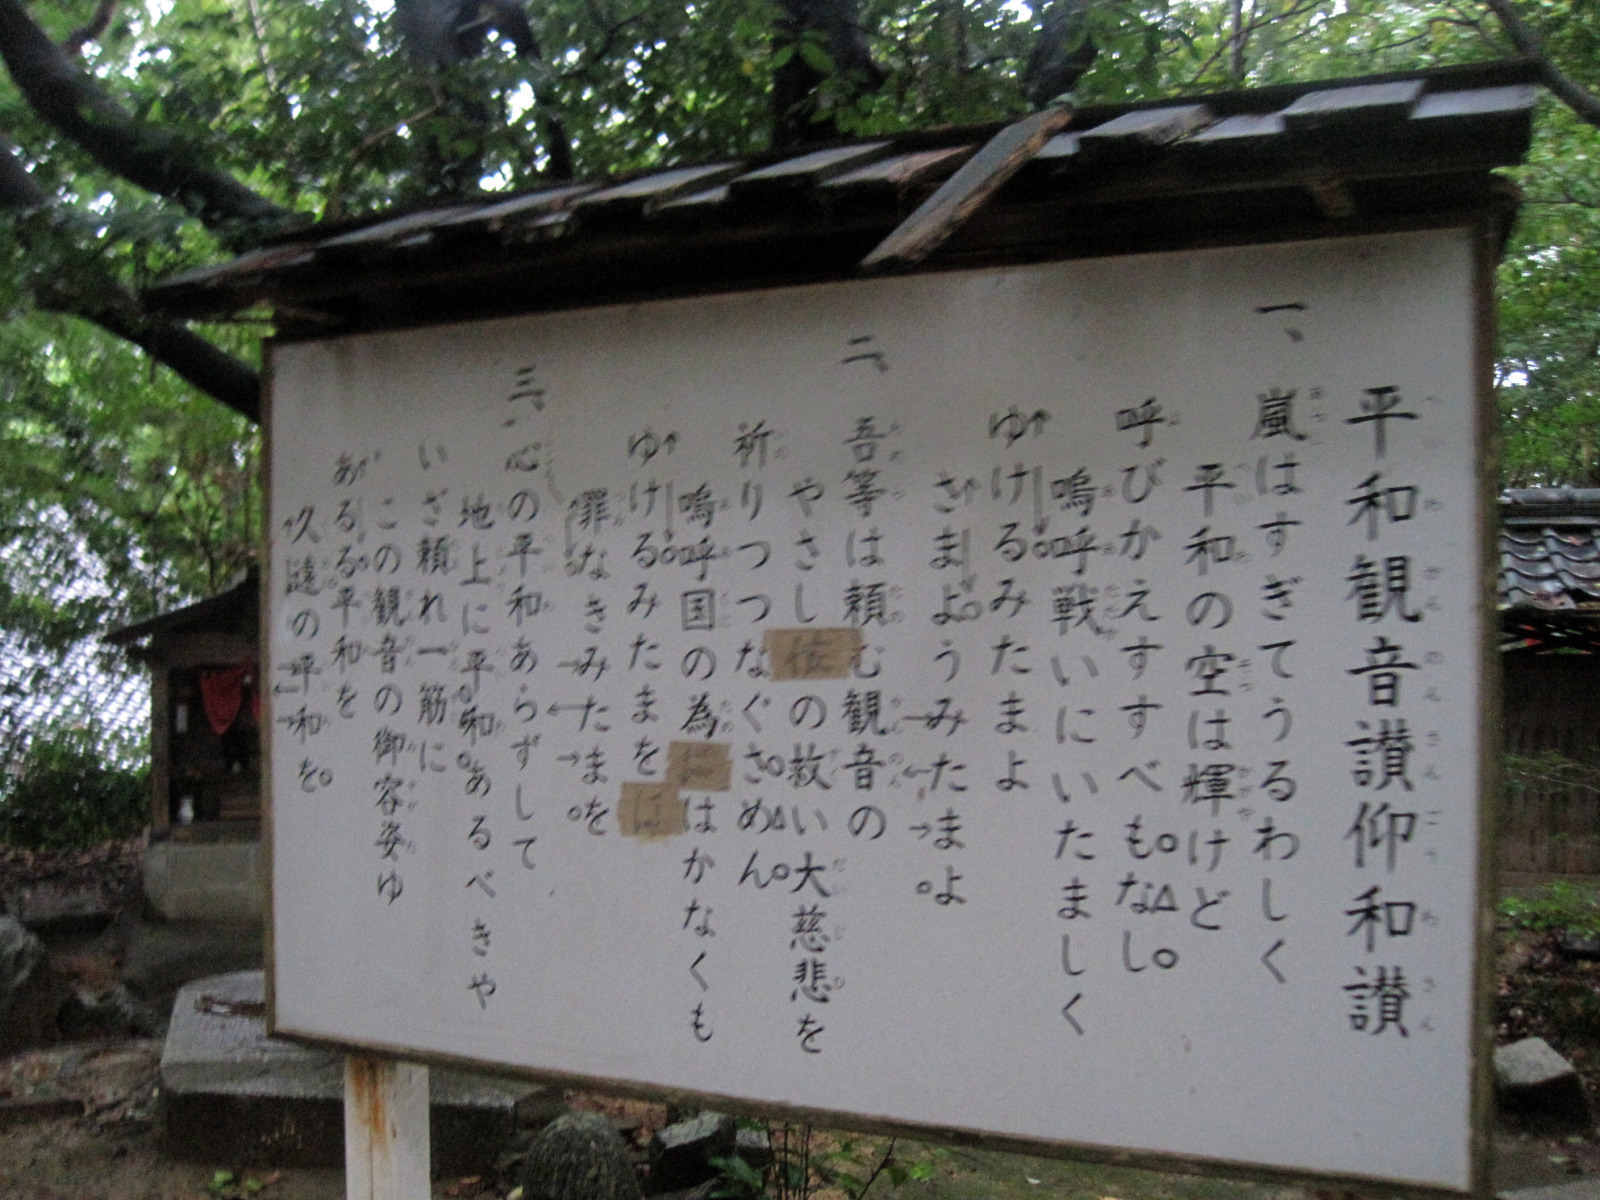 平和観音讃仰和讃
一、嵐はすぎてうるわしく
平和の空は輝けど
呼びかえすすべもなし
嗚呼戦いにいたましく
ゆけるみたまよ
さまようみたまよ
二、吾等は頼む観音の
やさしの救い大慈悲を
祈りつつなぐさめん
嗚呼国の為にはかなくも
ゆけるみたまをば
罪なきみたまを
三、心の平和あらずして
地上に平和あるべきや
いざ頼れ一筋に
この観音の御容姿ゆ
あるる平和を
久遠の平和を